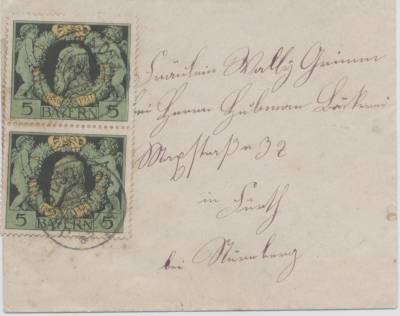 5 BAYERN 5
5 BAYERN 5
Fräulein Wally Grimm
bei Herrn Hubman Bäckerei
Maxstraße 32
in
Fürth
bei Nürnberg